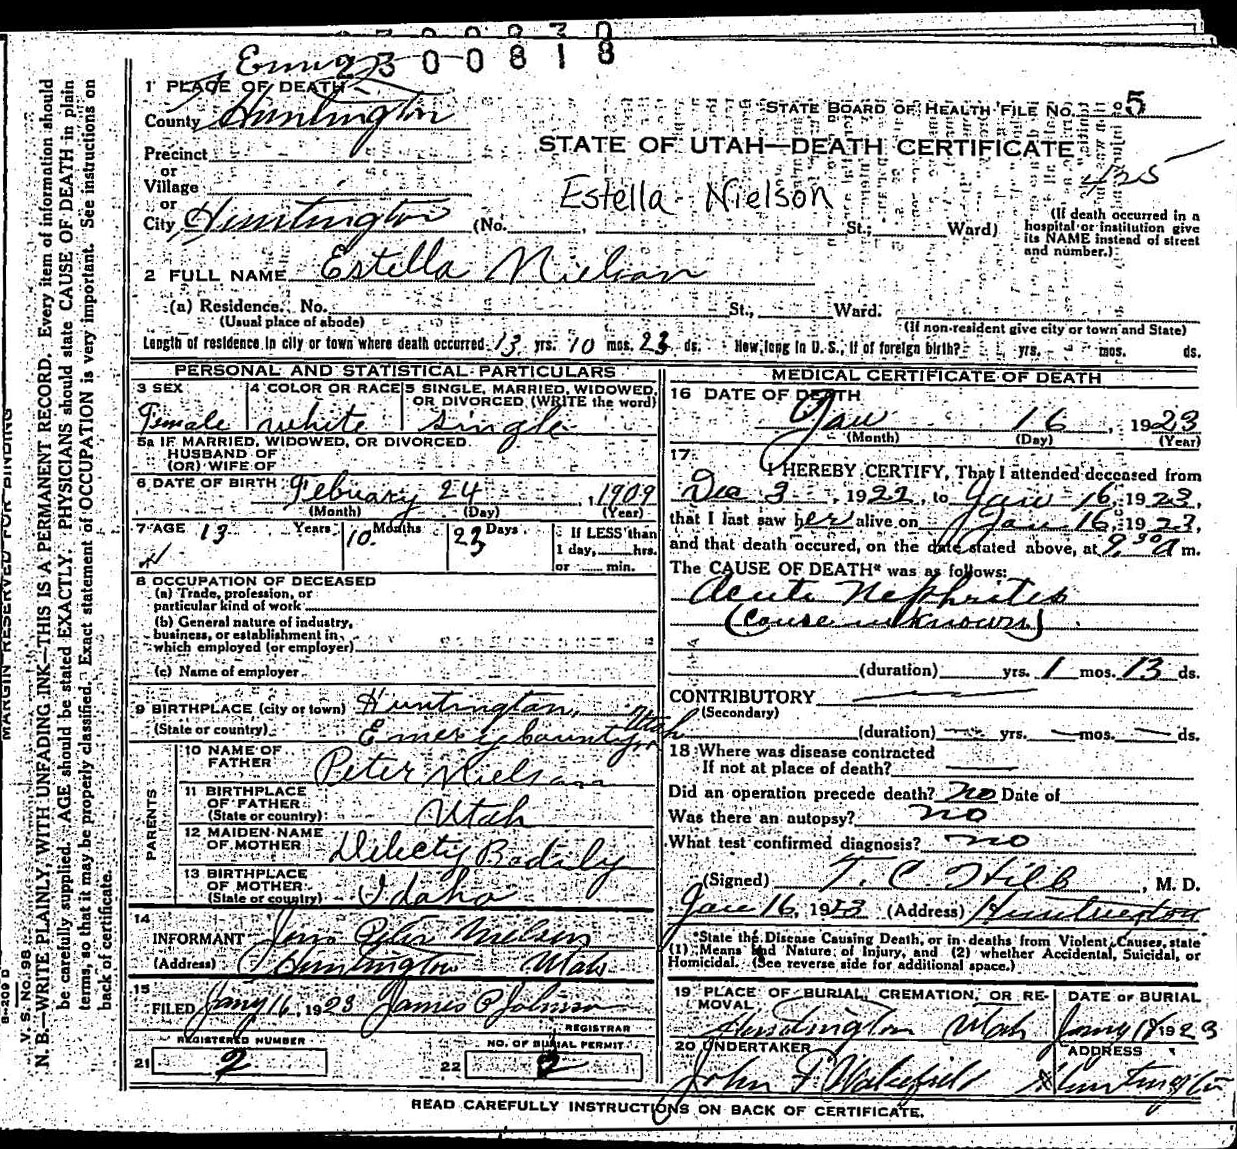 2300818
Emery
1 PLACE OF DEATH
County Huntington
STATE BOARD OF HEALTH FILE NO. 5
STATE OF UTAH—DEATH CERTIFICATE
Precinct
or
Village
or
Estella Nielson
City Huntington (No. , St.; Ward)
(If death occurred in a
hospital or institution give
its NAME instead of street
and number.)
2 FULL NAME Estella Nielson
(a) Residence. No. St., Ward.
(Usual place of abode)
(If non-resident give city or town and State)
Length of residence in city or town where death occurred 13 yrs. 10 mos. 23 ds. How long in U. S., if of foreign birth? yrs. mos. ds.
PERSONAL AND STATISTICAL PARTICULARS
3 SEX
Female
4 COLOR OR RACE
white
5 SINGLE, MARRIED, WIDOWED,
OR DIVORCED (WRITE the word)
single
5a IF MARRIED, WIDOWED, OR DIVORCED
HUSBAND OF
(OR) WIFE OF
6 DATE OF BIRTH Febuary 24, 1909
(Month) (Day) (Year)
7 AGE 13 Years 10 Months 23 Days
If LESS than
1 day, hrs.
or min.
8 OCCUPATION OF DECEASED
(a) Trade, profession, or
particular kind of work
(b) General nature of industry,
business, or establishment in
which employed (or employer)
(c) Name of employer
9 BIRTHPLACE (city or town) Huntington, Utah
(State or country) Emery County
PARENTS
10 NAME OF
FATHER Peter Nielson
11 BIRTHPLACE
OF FATHER
(State or country) Utah
12 MAIDEN NAME
OF MOTHER Badily
13 BIRTHPLACE
OF MOTHER
(State or country) Idaho
14
INFORMANT Jens Peter Nielsen
(Address) Huntington Utah
15
FILED Jany 16, 1923 James P Johnson
REGISTRAR
REGISTERED NUMBER
21 2
NO. OF BURIAL PERMIT
22 2
MEDICAL CERTIFICATE OF DEATH
16 DATE OF DEATH
Jan 16, 1923
(Month) (Day) (Year)
17
I HEREBY CERTIFY, That I attended deceased from
Dec 3, 1922, to Jan 16, 1923,
that I last saw her alive on Jan 16, 1923,
and that death occured, on the date stated above, at 9 30 a m.
The CAUSE OF DEATH* was as follows:
Acute Nephrites
(Cause unknown)
(duration) yrs. 1 mos. 13 ds.
CONTRIBUTORY
(Secondary)
(duration) yrs. mos. ds.
18 Where was disease contracted
If not at place of death?
Did an operation precede death? no Date of
Was there an autopsy? no
What test confirmed diagnosis? no
(Signed) T. C. Hill, M. D.
Jan 16, 1923 (Address) Huntington
*State the Disease Causing Death, or in deaths from Violent Causes, state
(1) Means and Nature of Injury, and (2) whether Accidental, Suicidal, or
Homicidal. (See reverse side for additional space.)
19 PLACE OF BURIAL, CREMATION, OR RE-
MOVAL
Huntington Utah
DATE OF BURIAL
Jany 18 1923
20 UNDERTAKER
John F Wakefield
ADDRESS
Huntington
READ CAREFULLY INSTRUCTIONS ON BACK OF CERTIFICATE.
MARGIN RESERVED FOR BINDING
V. S. No. 98
N. B.—WRITE PLAINLY, WITH UNFADING INK—THIS IS A PERMANENT RECORD. Every item of information should
be carefully supplied. AGE should be stated EXACTLY. PHYSICIANS should state CAUSE OF DEATH in plain
terms, so that it may be properly classified. Exact statement of OCCUPATION is very important. See instructions on
back of certificate.